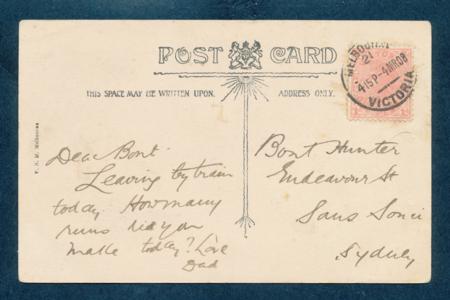 POST CARD
THIS SPACE MAY BE WRITTEN UPON.
ADDRESS ONLY.
MELBOURNE
21
4 15P - 4 MR 08
VICTORIA
Dear Bont.
Leaving by train
today. How many
runs did you
make today? Love
Dad
Bont Hunter
Endeavour St
Sans Souci
Sydney